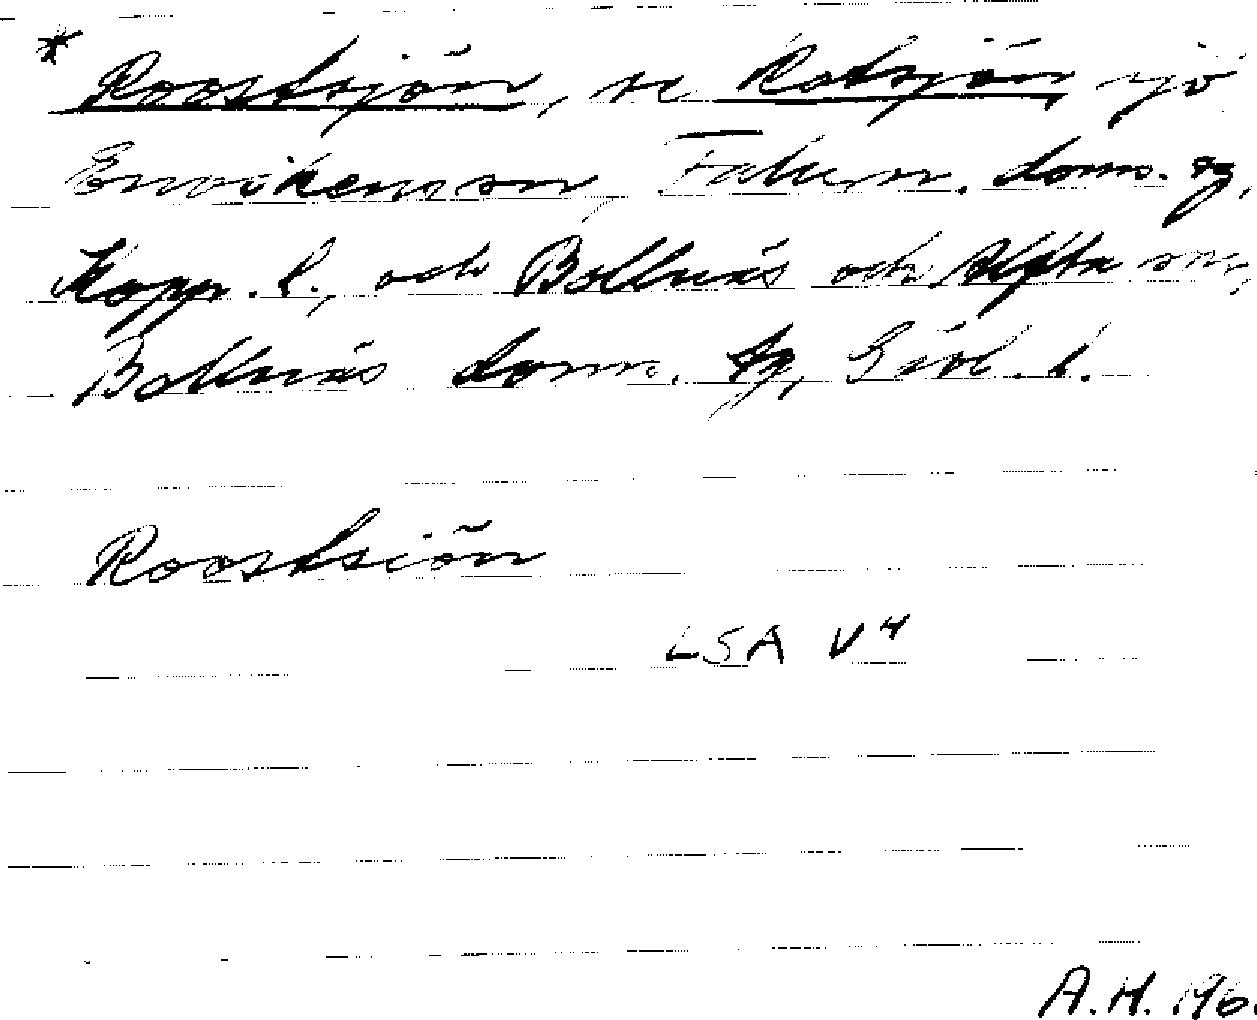 * Roostsjön, se Rotsjön, sjö
Envikens sn, Falun. doms. tg,
Kopp. l., och Bollnäs och Alfta snr,
Bollnäs doms. tg, Gävl. l.
Roostsiön
LSA V4
A.H. 196